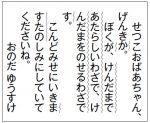 せつこおばあちゃん、
げんきか。
ぼくが、けんだまで
あたらしいわざで、け
んだまをのせるわざで
す。
こんどみせにいきま
すたのしみにしていて
くださいね。
おのだ ゆうすけ